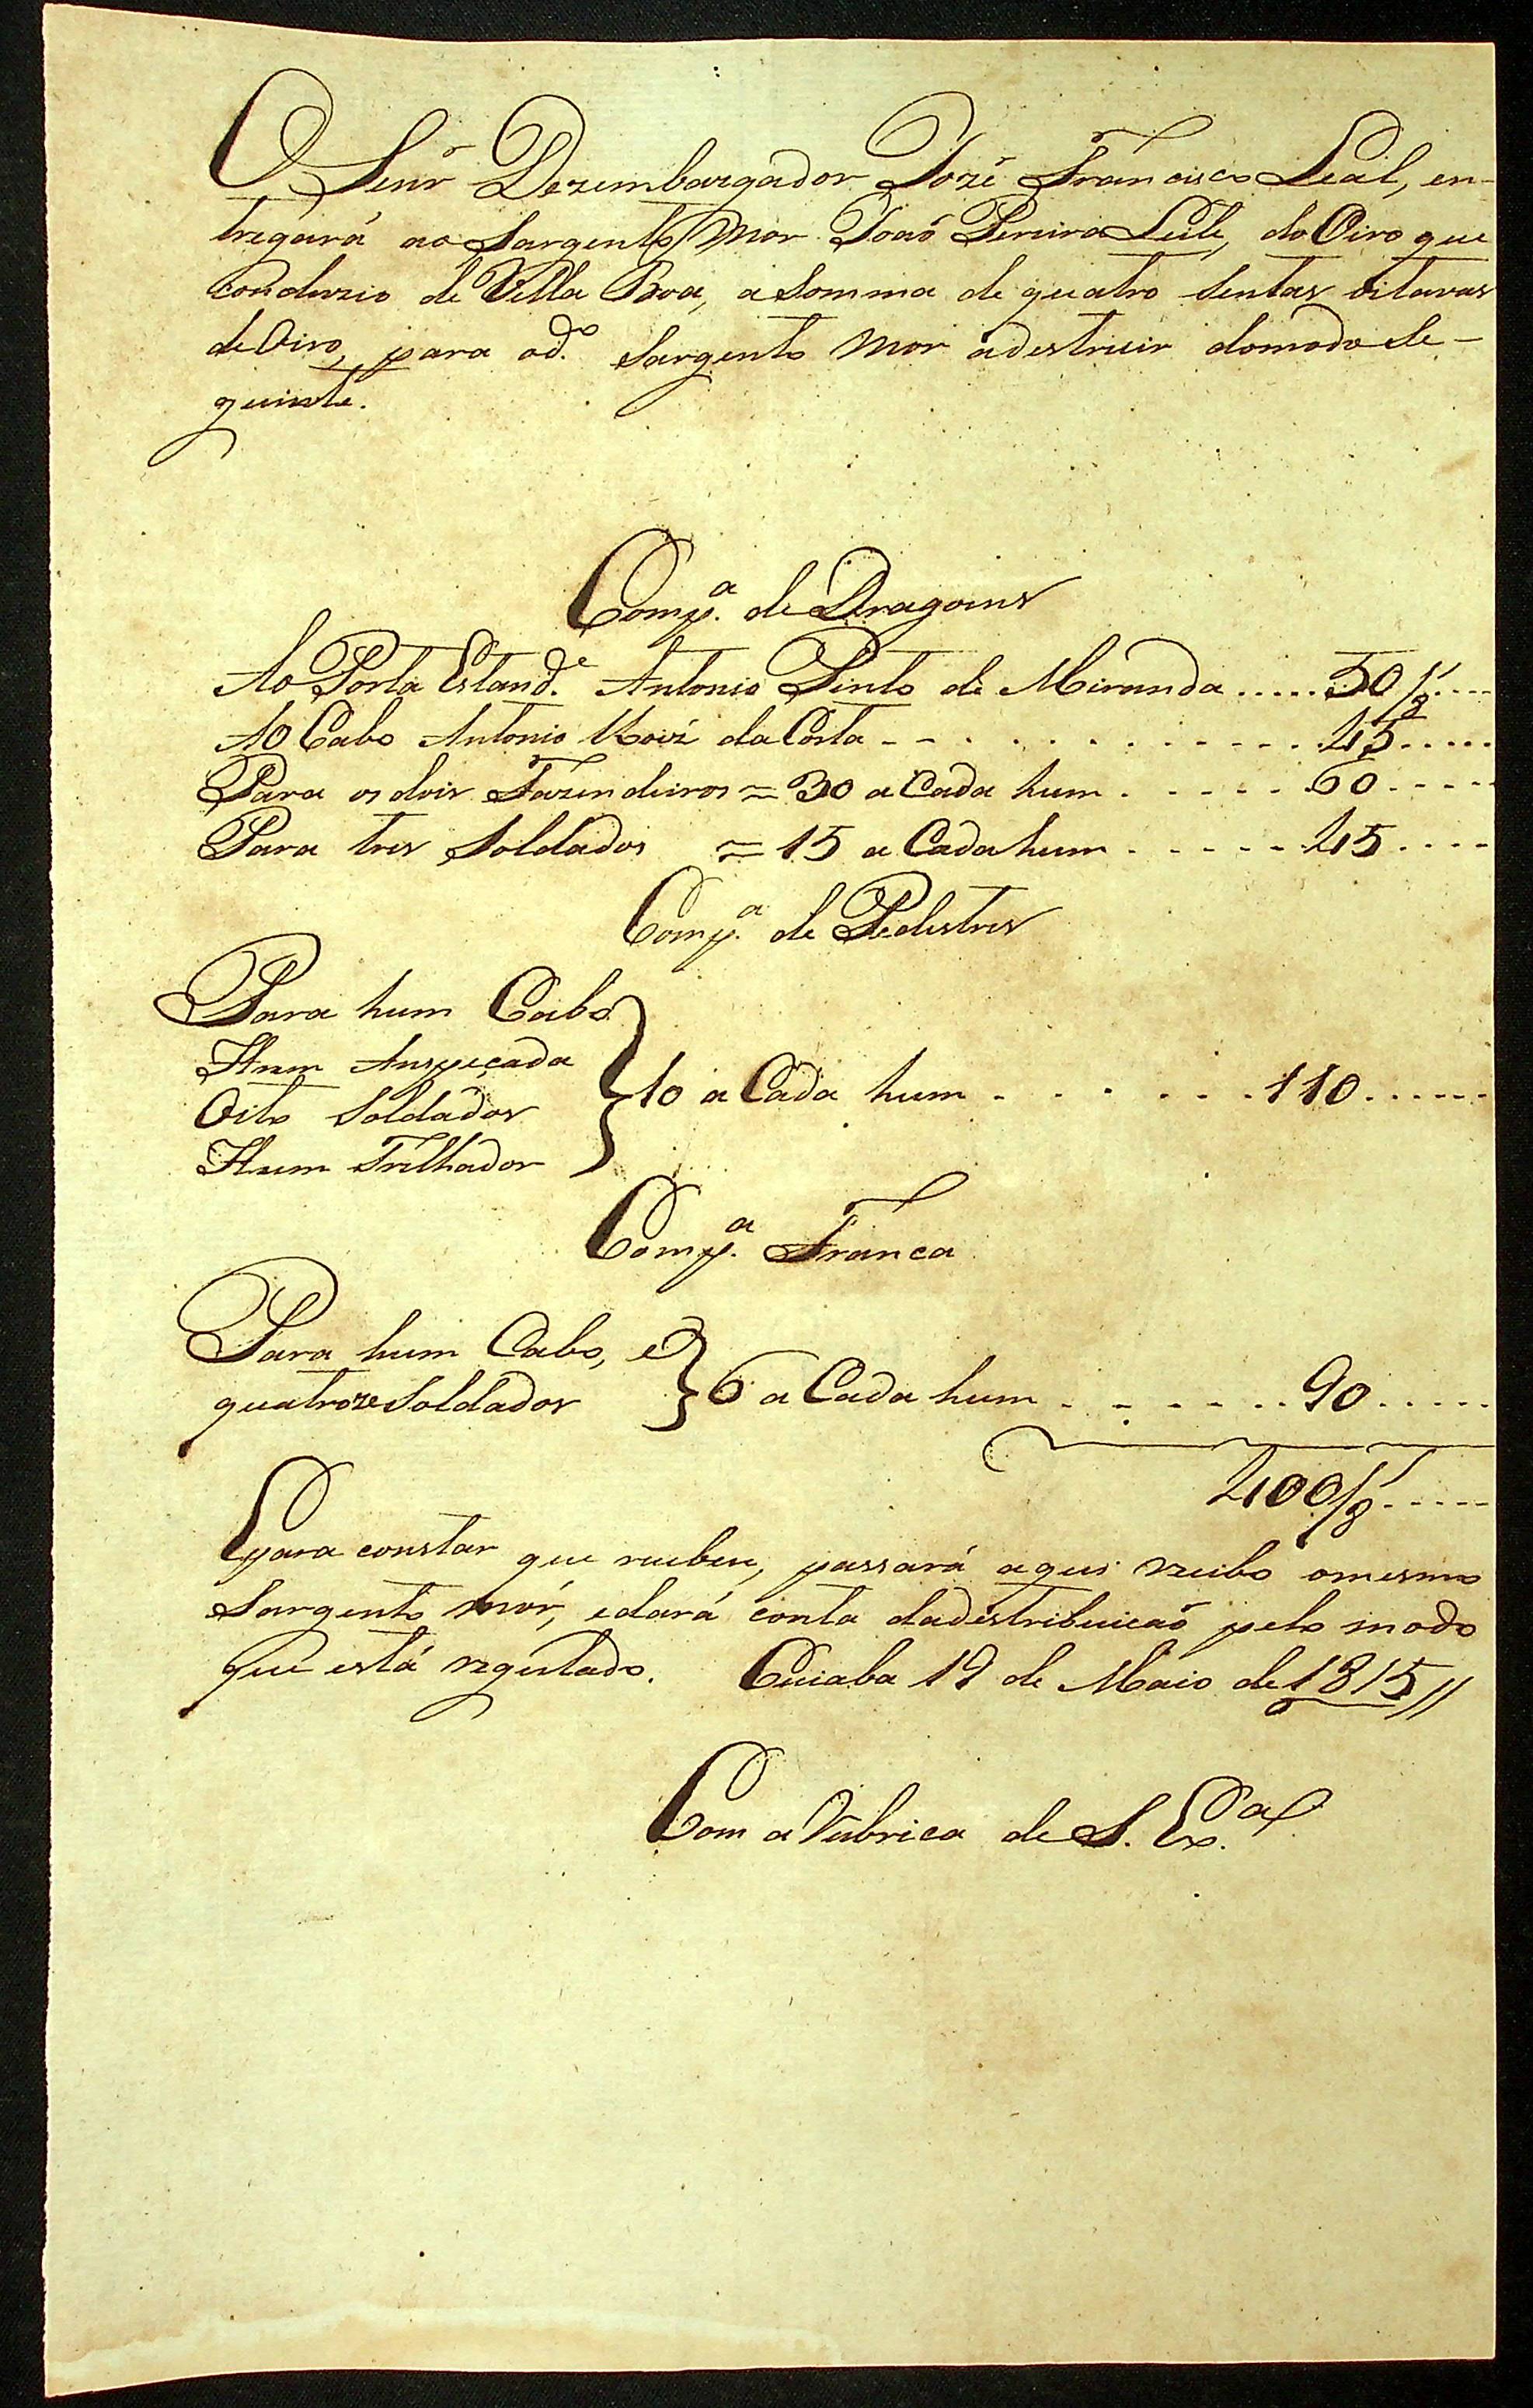 O Senr Dezembargador Jozé Francisco Leal, en-
tregará ao Sargento Mor Joaõ Pereira Leite, do Oiro que
conduzio de Villa Boa, a Somma de quatro Sentas oitavas
de Oiro, para o d.º Sargento Mor adestruir do modo Se-
guinte.
Comp.ª de Dragoens
Ao Porta Estand.e Antonio Pinto de Miranda ...... 50/8 ....
Ao Cabo Antonio da Costa - - . . . . . . . . 45 .....
Para os dois Fazendeiros = 30 a Cada hum . - - - - 60 - - - -
Para tres Soldados = 15 a Cada hum . - - - - 45 ....
Comp.ª de Pedestres
Para hum Cabo
Hum Anspeçada
Oito Soldados
Hum Trilhador
10 a Cada hum . . . . . . . 110 ......
Comp.ª Franca
Para hum Cabo, e
quatroze Soldados
6 a Cada hum . . - - - .. 90 .....
400/8 .....
E para constar que recebeu, passará aqui recibo o mesmo
Sargento mór, e dará conta da destribuicaõ pelo modo
que está regulado. Cuiaba 19 de Maio de 1815 //
Com a Rubrica de S. Ex.ª